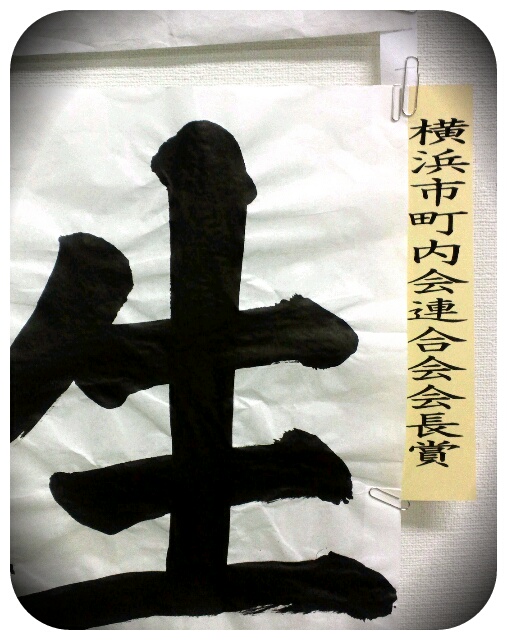 横浜市町内会連合会会長賞
生